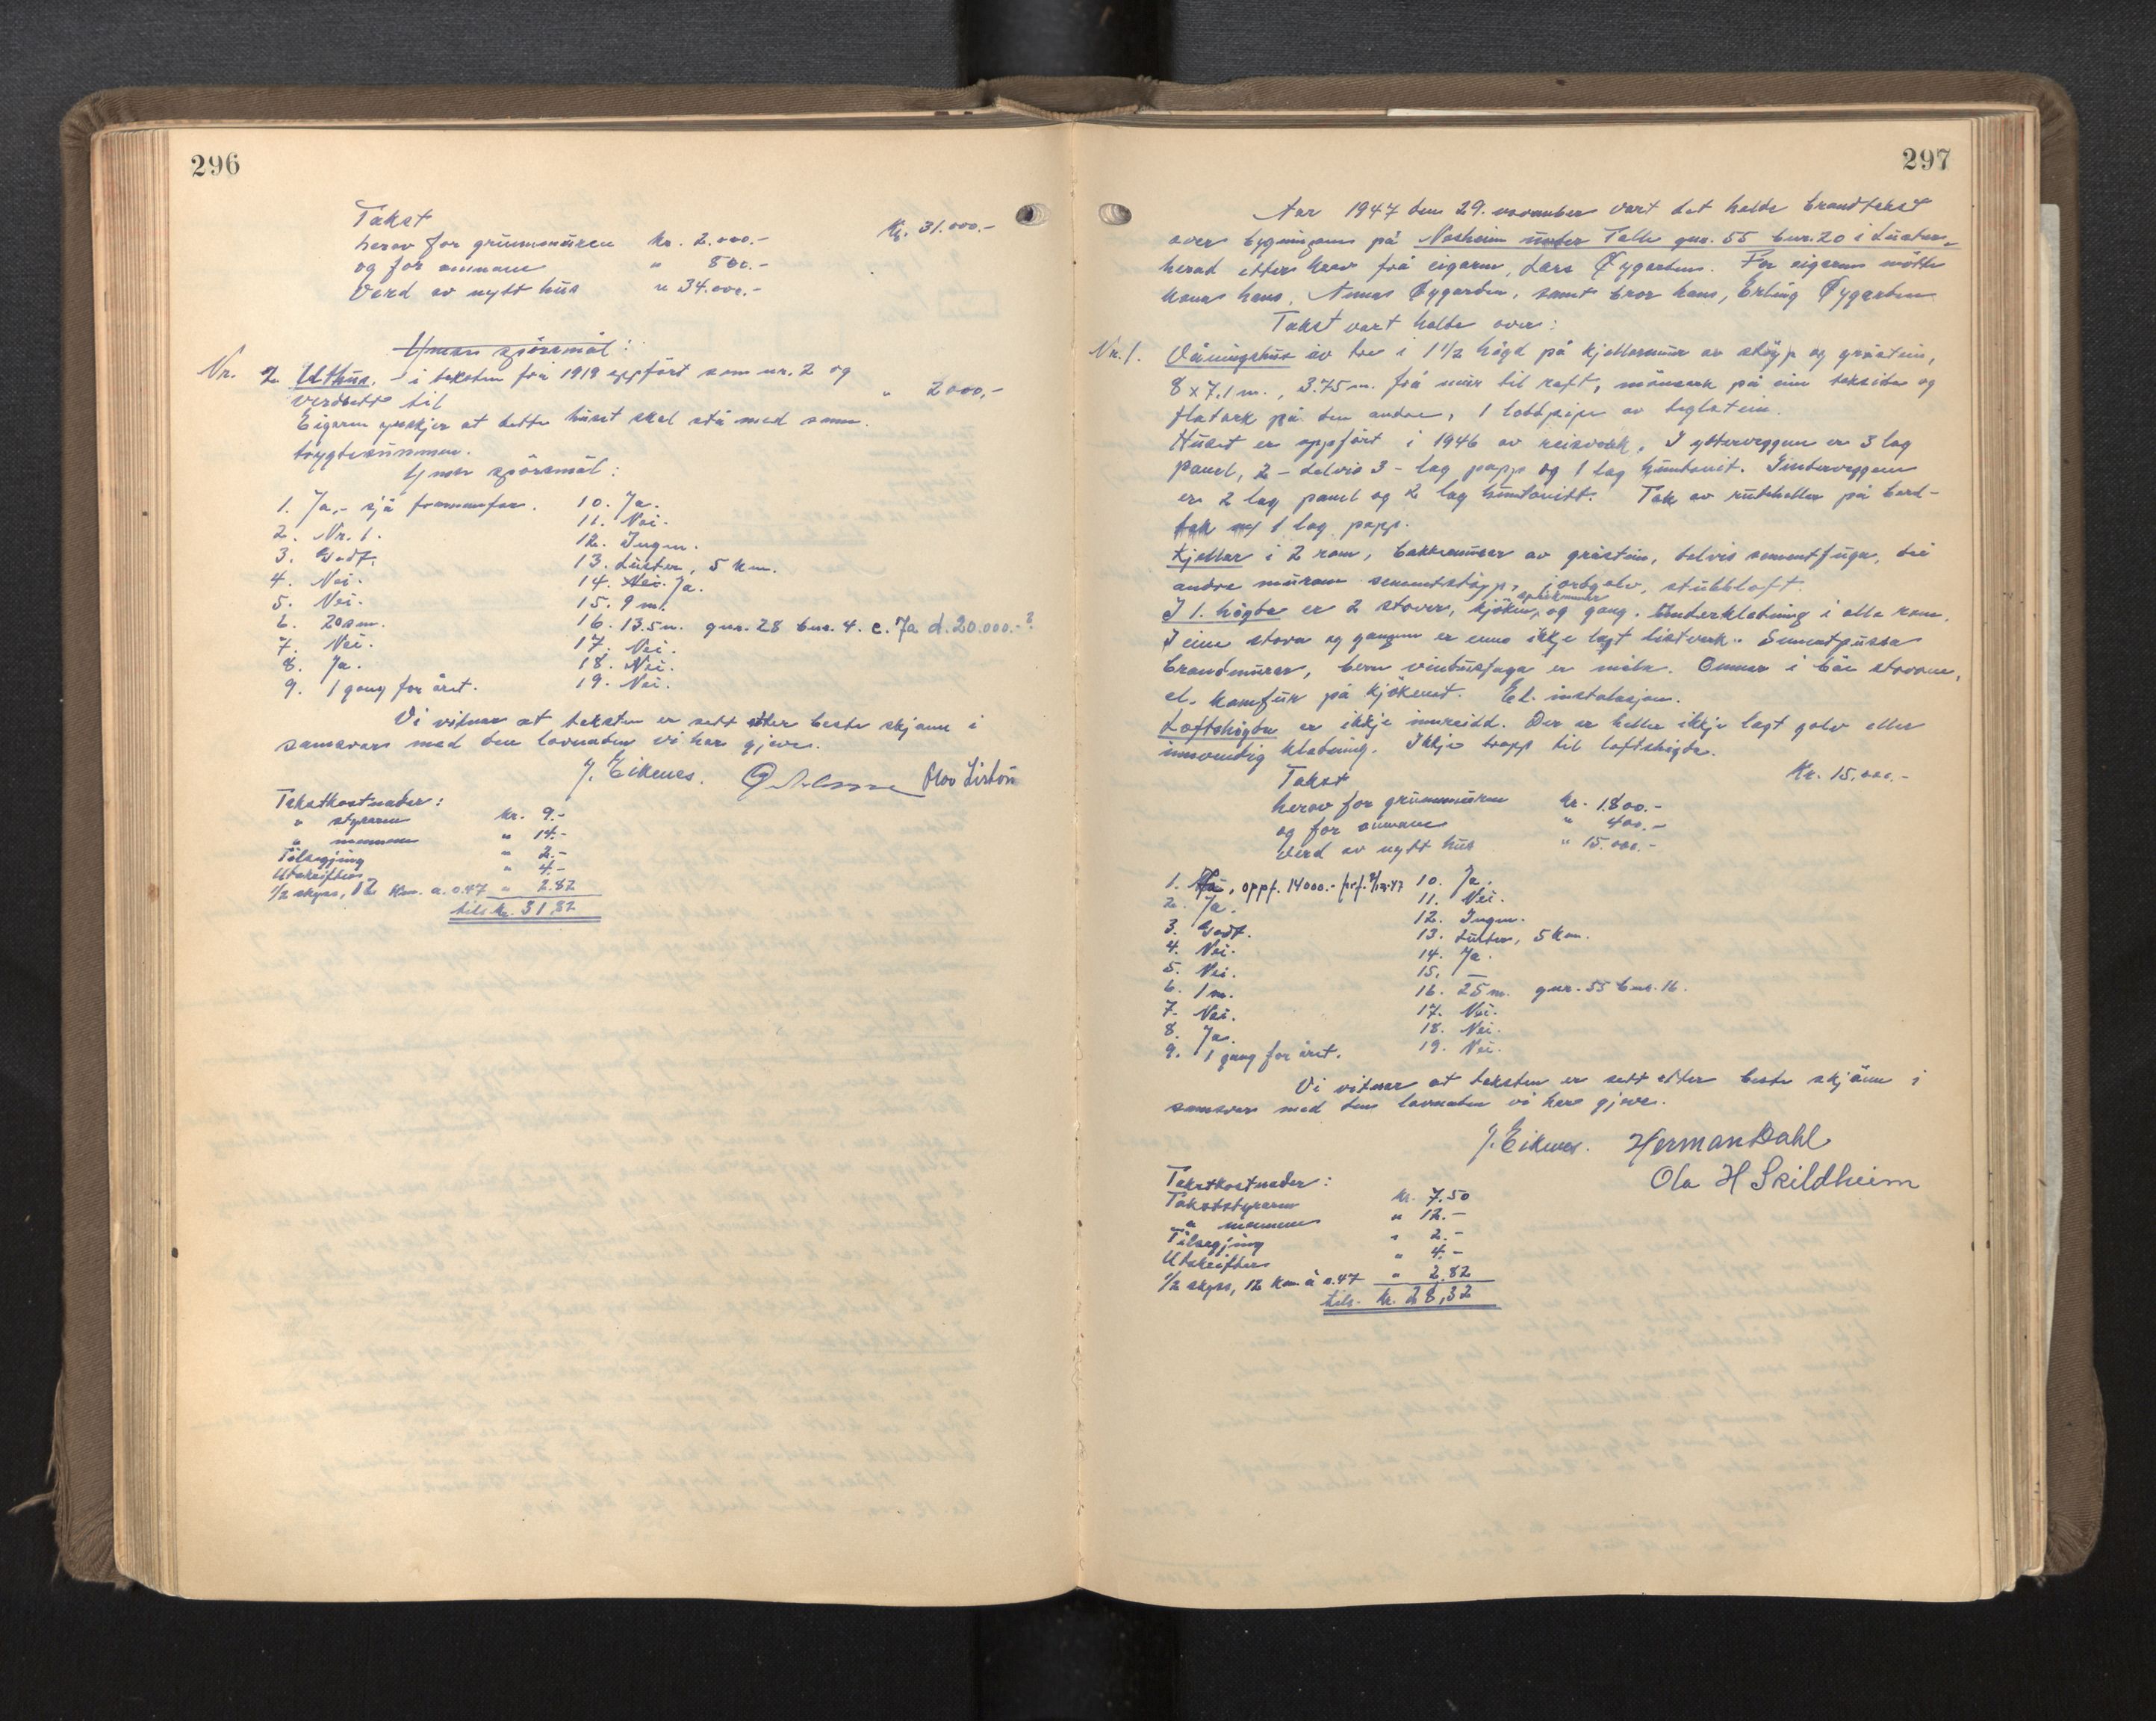 296
Takst Kr. 31.000.-
herav for grunnmuren kr. 2.000.-
og for omnane " 800.-
Verd av nytt hus " 34.000.-
Ymse spörsmål:
Nr. 2 Uthus. - i taksten frå 1919 oppfört som nr. 2 og
verdsett til " 2000,-
Eigaren ynskjer at dette huset skal stå med same
trygdesummen.
Ymse spörsmål:
1. Ja, - sjå framanfor. 10. Ja.
2. Nr. 1. 11. Nei.
3. Godt. 12. Ingen.
4. Nei. 13. Luster, 5 km.
5. Nei. 14. Nei. Ja.
6. 20 sm. 15. 9 m.
7. Nei. 16. 13.5 m. gnr. 28 bnr. 4. c. Ja d. 20.000.- ?
8. Ja. 17. Nei.
9. 1 gong for året. 18. Nei.
19. Nei.
Vi vitnar at taksten er sett etter beste skjönn i
samsvar med den lovnaden vi har gjeve.
J. Eikenes. Olav Lirhön
Takstkostnader:
" styraren kr. 9.-
" mennene " 14.-
Tilsegjing " 2.-
Utskrifter " 4.-
1/2 skyss, 12 km. a. 0.47 " 2.82
tils. kr. 31,82
297
Aar 1947 den 29. november vart det halde brandtakst
over bygningane på Nosheim under Talle gnr. 55 bnr. 20 i Luster
herad etter krav frå eigaren, Lars Øygarden. For eigaren mötte
kona hans, Øygarden, samt bror hans, Erling Øygarden
Takst vart halde over:
Nr. 1. Våningshus av tre i 1 1/2 högd på kjellarmur av stöyp og gråstein,
8 x 7.1 m., 3.75 m. frå mur til raft, mönsark på ein takside og
flatark på den andre, 1 loddpipe av teglstein.
Huset er oppfört i 1946 av reisverk. I ytterveggene er 3 lag
panel, 2 - delvis 3 - lag papp og 1 lag huntonit. Innerveggene
er 2 lag panel og 2 lag huntonitt. Tak av ruteheller på bord-
tak m/ 1 lag papp.
Kjellar i 2 rom, bakkemurar av gråstein, delvis sementfuga, dei
andre murane sementstöyp, jordgolv, stubbloft.
I 1. högda er 2 stover, kjöken, spiskammer og gang. Underkledning i alle rom.
I eine stova og gangen er enno ikkje lagt listverk. Sementpussa
brandmurar, berre vindusfaga er måla. Omnar i båe stovone,
el. komfur på kjökenet. El. instalasjon.
Loftshögda er ikkje innreidd. Der er heller ikkje lagt golv eller
innvendig kledning. Ikkje trapp til loftshögda.
Takst Kr. 15.000.-
herav for grunnmuren kr. 1.800.-
og for omnane " 400.-
Verd av nytt hus " 15.000.-
1. oppf. 14000.- 10. Ja.
2. Ja. 11. Nei.
3. Godt. 12. Ingen.
4. Nei. 13. Luster, 5 km.
5. Nei. 14. Ja.
6. 1 m. 15. —
7. Nei. 16. 25 m. gnr. 55 bnr. 16.
8. Ja. 17. Nei.
9. 1 gong for året. 18. Nei.
19. Nei.
Vi vitnar at taksten er sett etter beste skjönn i
samsvar med den lovnaden vi har gjeve.
J. Eikenes. Herman Dahl
Ola H Skildheim
Takstkostnader:
Takststyraren kr. 7.50
" mennene " 12.-
Tilsegjing " 2.-
Utskrifter " 4.-
1/2 skyss, 12 km. à 0.47 " 2.82
tils. kr. 28,32